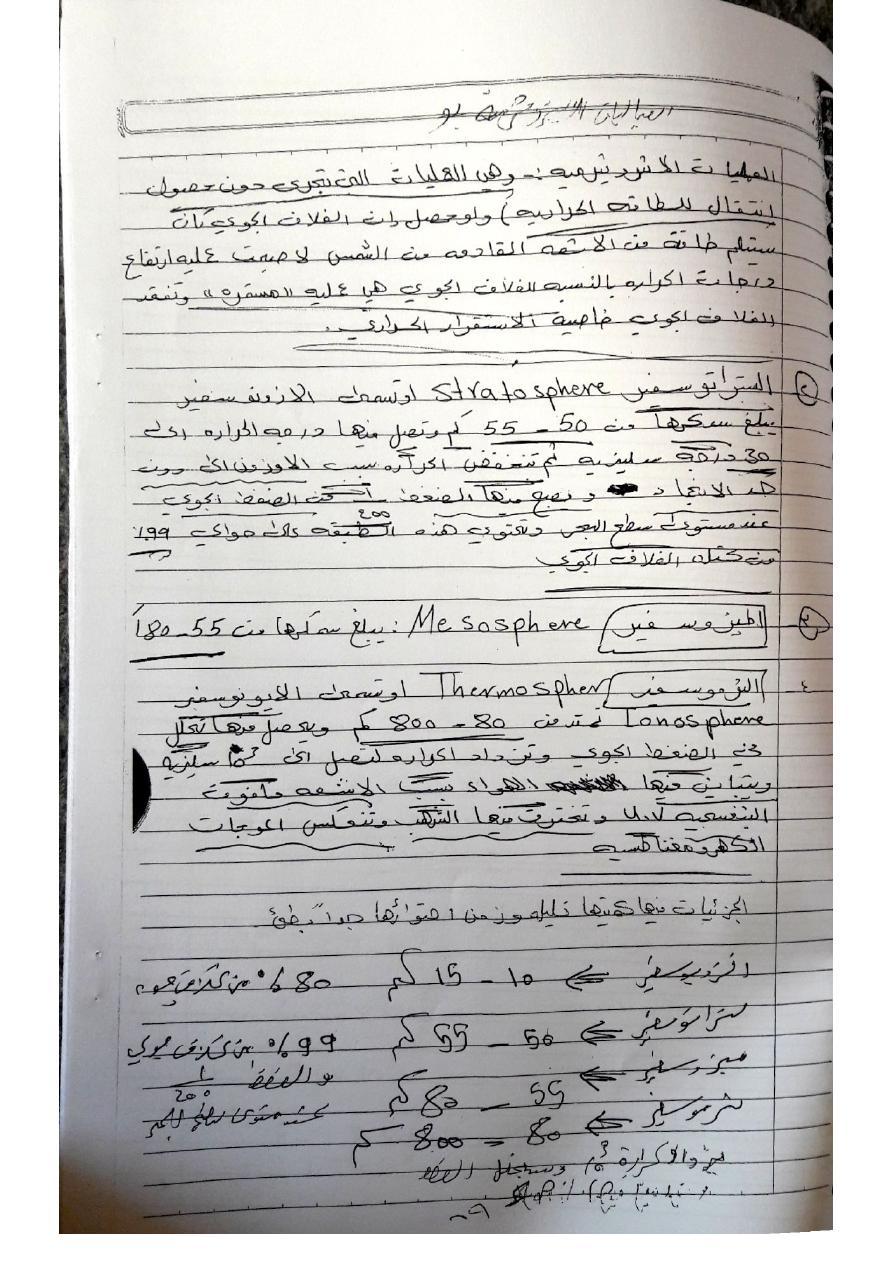 العمليات الاثرديثرميه :- وهي العمليات التي تجرى دون حصول
إنتقال للطاقه الحراريه) ولوحصل وان الغلاف الجوي كان
يستلم طاقة من الاشعه القادمه من الشمس لاصبحت عليه ارتفاع
درجات الحراره بالنسبه الغلاف الجوي هي عليه "مستمره" وتفقد
الغلاف الجوي خاصية الاستقرار الحراري.
٢ الستراتوسفير Stratosphere اوتسمى الازونوسفير
يبلغ سمكها من 50 - 55 كم وتصل فيها درجه الحراره الى
30 درجة سليزيه ثم تنخفض الحراره بسبب الاوزون الى دون
حد الانجماد ويصبح فيها الضغط من الضغط الجوي
٢٠٠
عند مستوى سطع البحر وتحتوي هذه الطبقه على حوالي 99٪
من كتله الغلاف الجوي
٣- الميزوسفير Mesosphere : يبلغ سمكها من 55 - 80
٤- الثرموسفير Thermospher اوتسمى الايونوسفير
Ionosphere تمتد من 80 - 800 كم ويحصل فيها تخلل
في الضغط الجوي وتزداد الحراره لتصل الى سليزيه
ويتباين فيها الهواء بسبب الاشعه مافوق
البنفسجيه U.V وتحترق فيها الشهب وتنعكس الموجات
الكهرومغناطيسيه
الجزئيات فيها كميتها قليله وزمن احتوائها جداً بطئ
التروبوسفير ⇐ 10 - 15 كم 80 ٪ من
ستراتوسفير ⇐ 50 - 55 كم 99 ٪ من غلاف جوي
ميزوسفير ⇐ 55 - 80 كم والضغط
عند مستوى سطح البحر
ثرموسفير ⇐ 80 - 800 كم